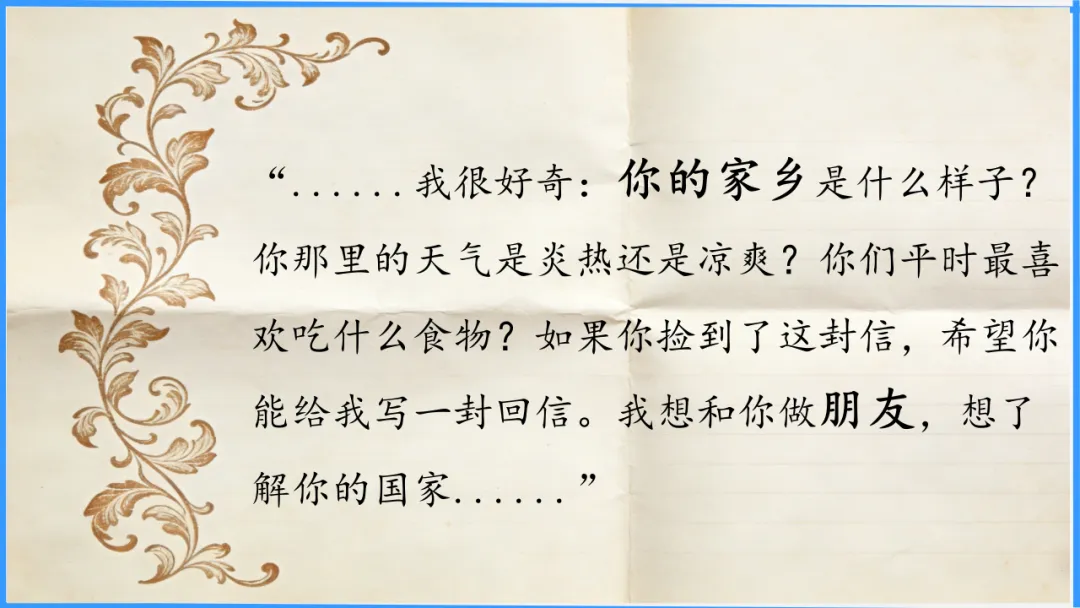 “......我很好奇：你的家乡是什么样子？
你那里的天气是炎热还是凉爽？你们平时最喜
欢吃什么食物？如果你捡到了这封信，希望你
能给我写一封回信。我想和你做朋友，想了
解你的国家......”